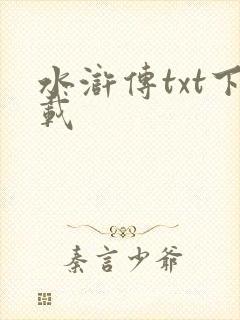 水滸傳txt下
載
秦言少爺